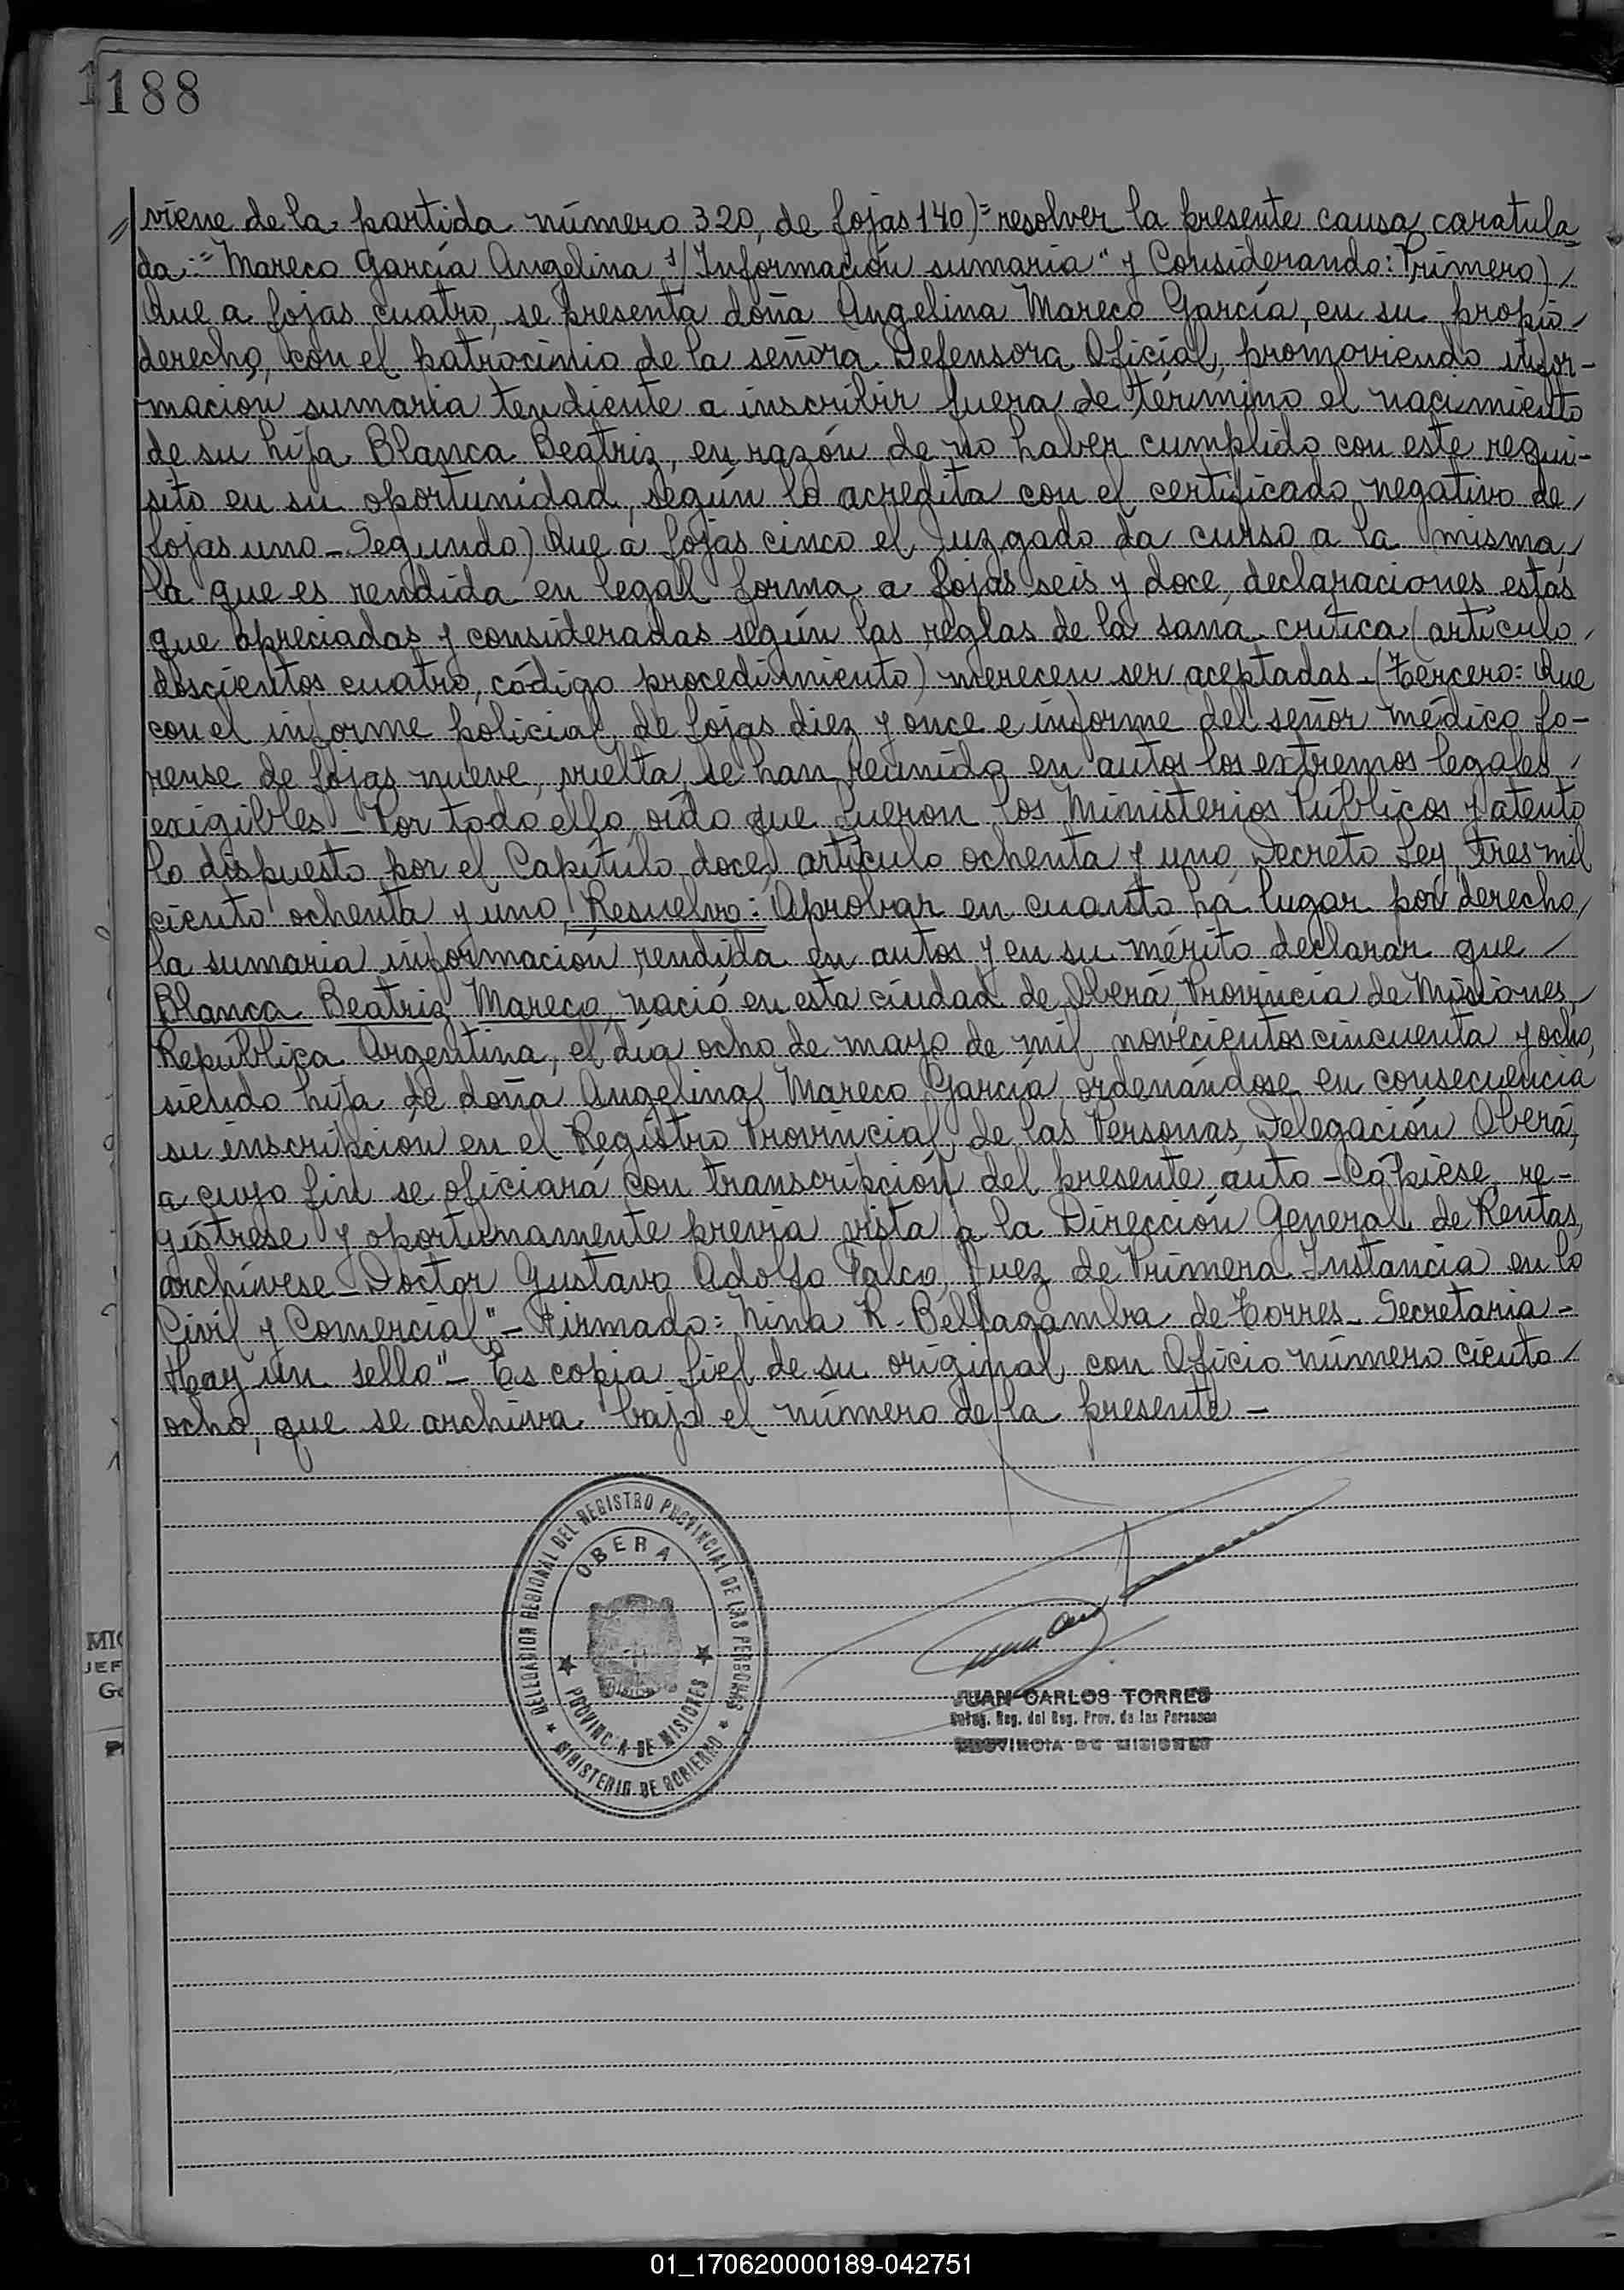 188
viene de la partida número 320, de fojas 140)= resolver la presente causa caratula
da:=" Mareco García Angelina s/ Información sumaria" y Considerando: Primero) /
Que a fojas cuatro, se presenta doña Angelina Mareco García, en su propio /
derecho, con el patrocinio de la señora Defensora Oficial, promoviendo infor-
mación sumaria tendiente a inscribir fuera de término el nacimiento
de su hija Blanca Beatriz, en razón de no haber cumplido con este requi-
sito en su oportunidad, según lo acredita con el certificado negativo de /
fojas uno - Segundo) Que a fojas cinco el Juzgado da curso a la misma, /
la que es rendida en legal forma a fojas seis y doce, declaraciones estas
que apreciadas y consideradas según las reglas de la sana crítica (artículo /
doscientos cuatro, código procedimiento) merecen ser aceptadas - (Tercero: Que
con el informe policial de fojas diez y once e informe del señor médico fo-
rense de fojas nueve, vuelta, se han reunido en autos los extremos legales /
exigibles - Por todo ello, oído que fueron los Ministerios Públicos y atento
lo dispuesto por el Capítulo doce, artículo ochenta y uno, Decreto Ley tres mil
ciento ochenta y uno, Resuelvo: Aprobar en cuanto ha lugar por derecho /
la sumaria información rendida en autos y en su mérito declarar que /
Blanca Beatriz Mareco, nació en esta ciudad de Oberá, Provincia de Misiones /
República Argentina, el día ocho de mayo de mil novecientos cincuenta y ocho,
siendo hija de doña Angelina Mareco García, ordenándose en consecuencia
su inscripción en el Registro Provincial de las Personas, Delegación Oberá,
a cuyo fin se oficiará con transcripción del presente auto - Cópiese, re-
gístrese y oportunamente previa vista a la Dirección General de Rentas,
archívese - Doctor Gustavo Adolfo Falco, Juez de Primera Instancia en lo
Civil y Comercial" - Firmado: Nina R. Bellagamba de Torres - Secretaria -
Hay un sello" - Es copia fiel de su original, con Oficio número ciento /
ocho, que se archiva bajo el número de la presente -
DELEGACION REGIONAL DEL REGISTRO PROVINCIAL DE LAS PERSONAS
OBERA
PROVINCIA DE MISIONES
MINISTERIO DE GOBIERNO
JUAN CARLOS TORRES
Deleg. Reg. del Reg. Prov. de las Personas
PROVINCIA DE MISIONES
MI
JEF
G
01_170620000189-042751